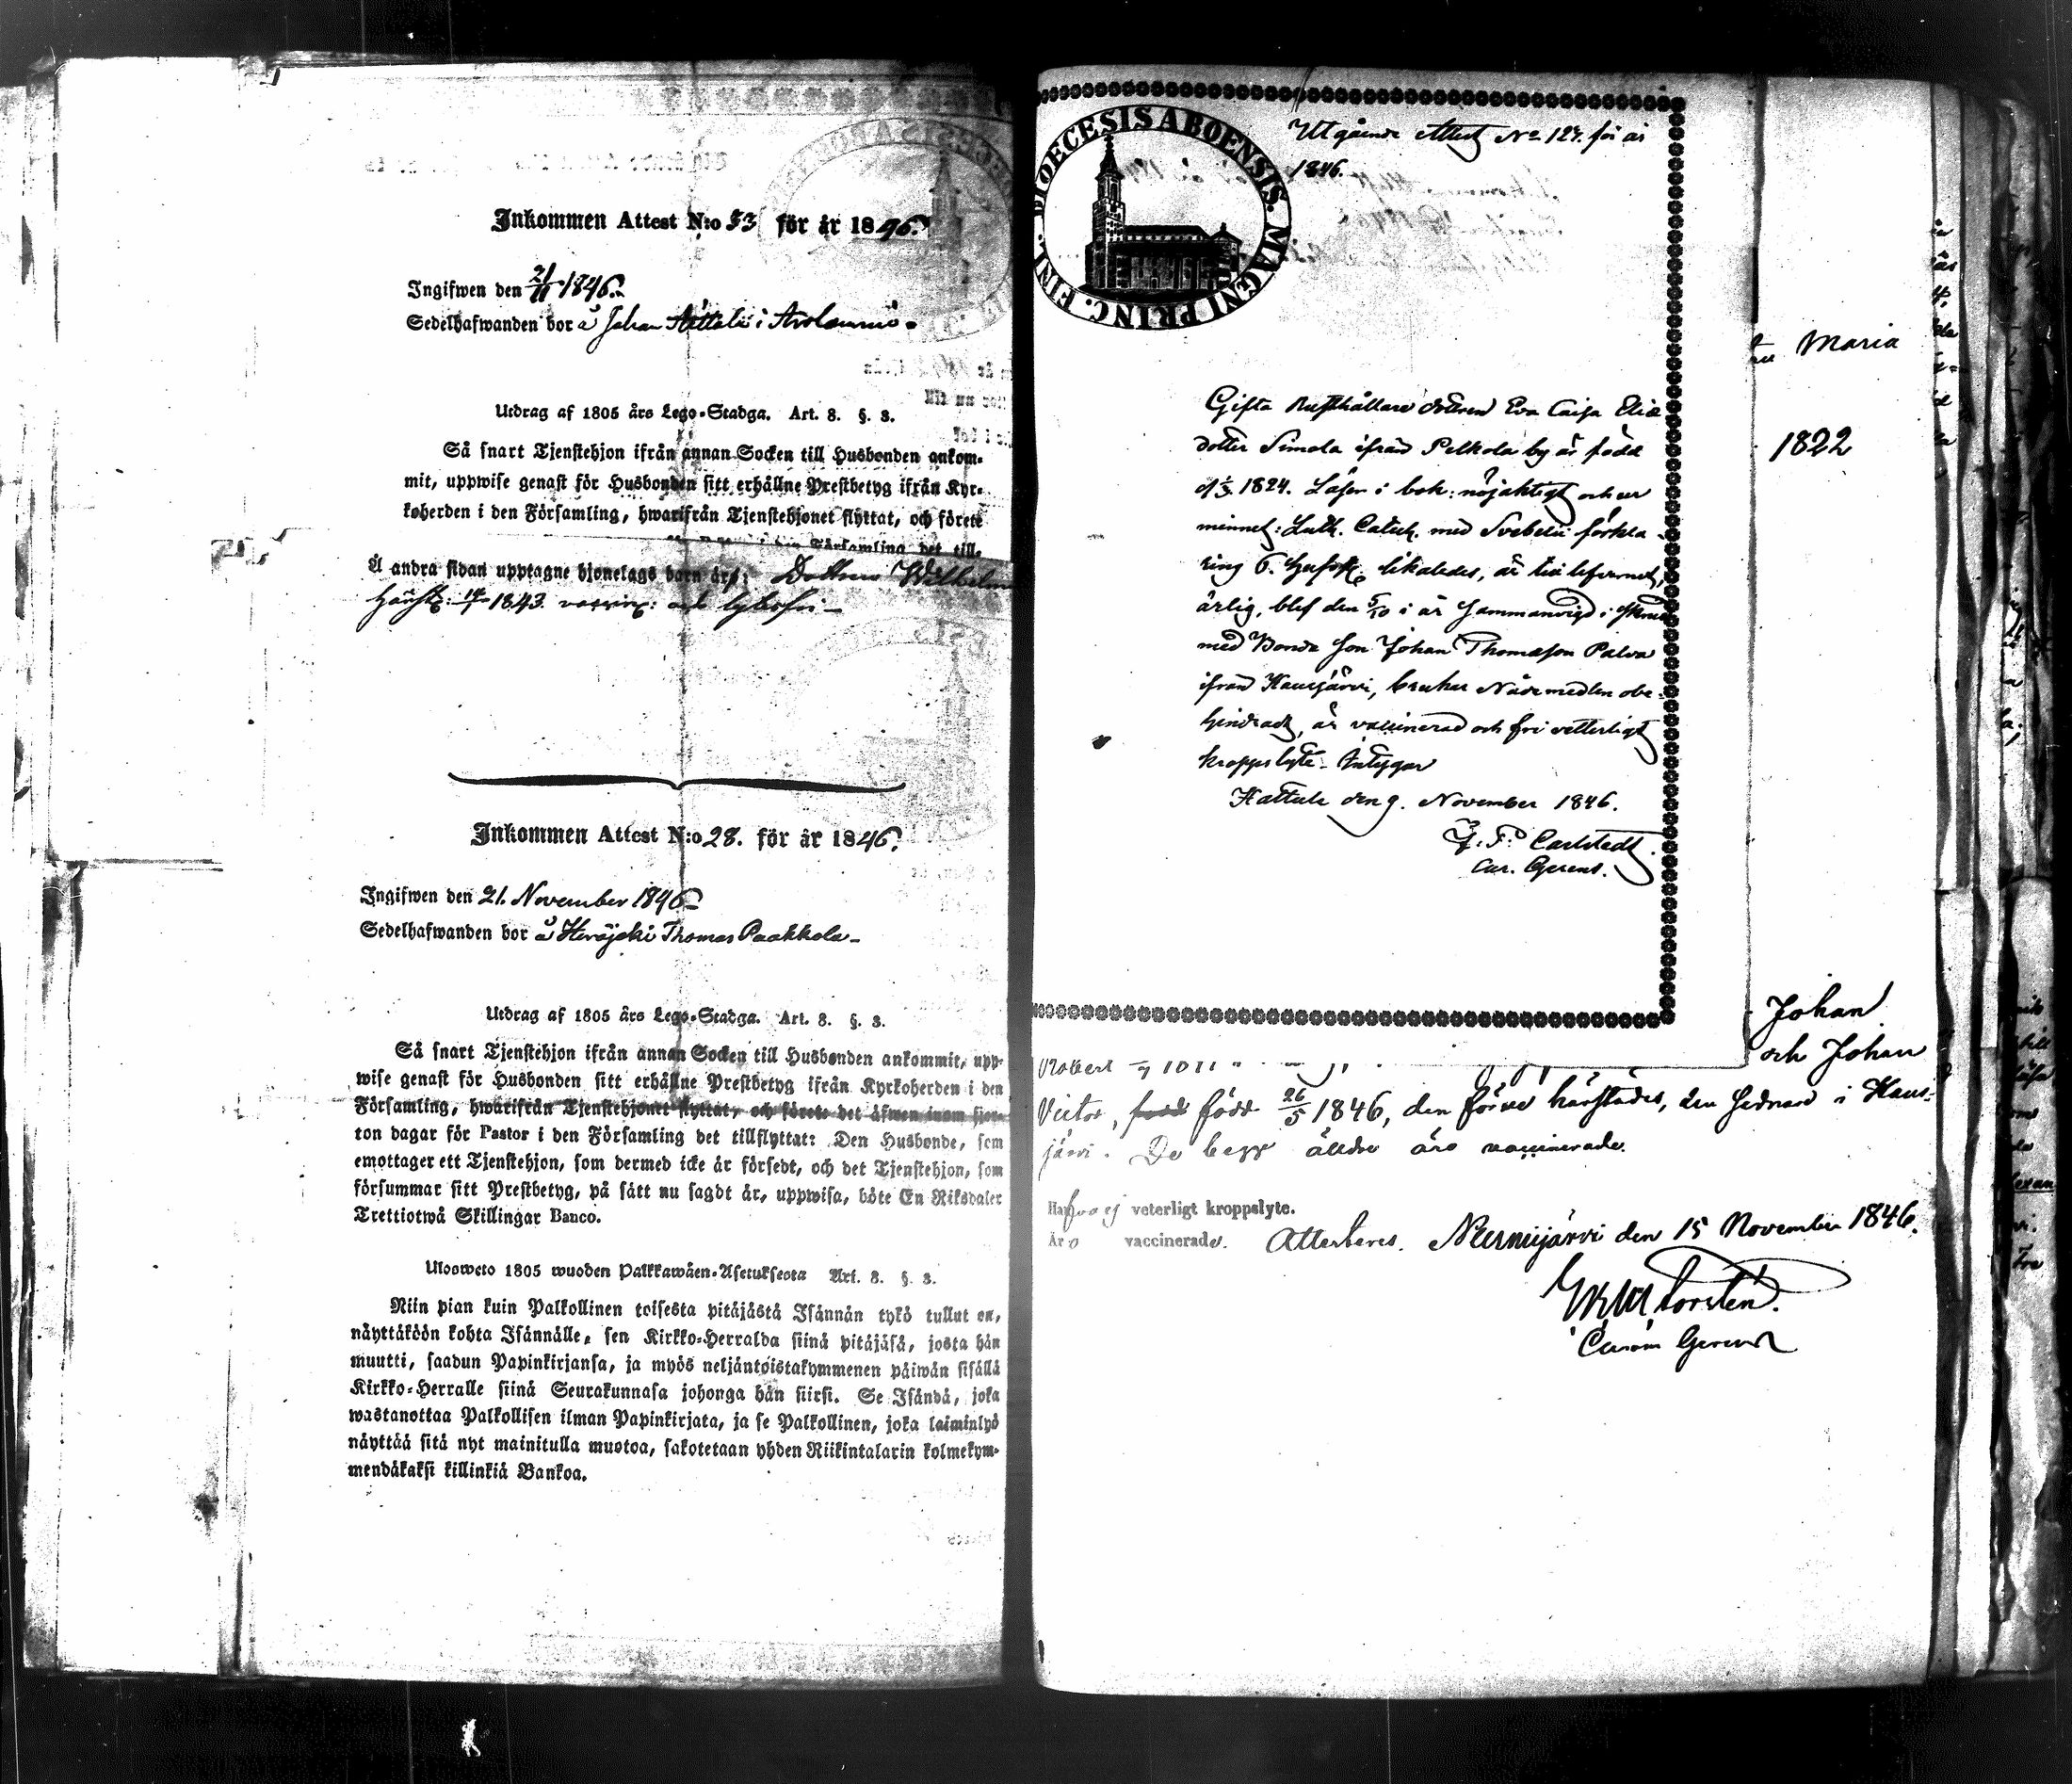 Inkommen Attest N:o 53 för år 1846.
Ingifwen den 21/11 1846.
Sedelhafwanden bor å Johan Attala i
Utdrag af 1805 års Lego-Stadga. Art. 8. §. 3.
Så snart Tjenstehjon ifrån annan Socken till Husbonden ankom-
mit, uppwise genast för Husbonden sitt erhållne Prestbetyg ifrån Kyr-
koherden i den Församling, hwarifrån Tjenstehjonet flyttat, och förete
Församling det till-
Å andra sidan upptagne hjonelags barn äro: Dottren Wilhelm
härst: 1843. och lytesfri
Inkommen Attest N:o 28. för år 1846.
Ingifwen den 21. November 1846
Sedelhafwanden bor å Heräjoki Thomas Paakkola
Utdrag af 1805 års Lego-Stadga. Art. 8. §. 3.
Så snart Tjenstehjon ifrån annan Socken till Husbonden ankommit, upp-
wise genast för Husbonden sitt erhållne Prestbetyg ifrån Kyrkoherden i den
Församling, hwarifrån Tjenstehjonet flyttat, och förete det äfwen inom fjor-
ton dagar för Pastor i den Församling det tillflyttat: Den Husbonde, som
emottager ett Tjenstehjon, som dermed icke är försedt, och det Tjenstehjon, som
försummar sitt Prestbetyg, på sätt nu sagdt är, uppwisa, böte En Riksdaler
Trettiotwå Skillingar Banco.
Ulosweto 1805 wuoden Palkkawäen-Asetuksesta Art. 8. §. 3.
Niin pian kuin Palkollinen toisesta pitäjästä Isännän tykö tullut on,
näyttäköön kohta Isännälle, sen Kirkko-Herralda siinä pitäjäsä, josta hän
muutti, saadun Papinkirjansa, ja myös neljäntoistakymmenen päiwän sisällä
Kirkko-Herralle siinä Seurakunnasa johonga hän siirsi. Se Isändä, joka
wastanottaa Palkollisen ilman Papinkirjata, ja se Palkollinen, joka laiminlyö
näyttää sitä nyt mainitulla muotoa, sakotetaan yhden Riikintalarin kolmekym-
mendäkaksi killinkiä Bankoa.
DIOECESIS ABOENSIS. MAGNI PRINC. FINL.
Utgående Attest No 127. för år
1846.
Gifta Rusthållare dottren Eva Caisa Elia
dotter Simola ifrån Pelkola by är född
d 1/3 1824. Läser i bok: nöjaktigt och ur
minnet: Luth. Catech. med Svebelii förkla-
ring 6. Hufvst. likaledes, är
ärlig, blef den 5/10 i år Sammanvigd i
med Bonde Son Johan Thomasson Palva
ifrån Hausjärvi, brukar Nådemedlen obe-
hindradt, är vaccinerad och fri vetterligt
kroppslyte. Intygar
Hattula den 9. November 1846.
J. F. Carlstedt.
Cur. Gerens.
Maria
1822
Johan
och Johan
Robert
Victor, född 26/5 1846, den förre härstädes, den sednare i Haus-
järvi. De begge äldre äro vaccinerade.
Hafva ej veterligt kroppslyte.
Äro vaccinerade. Attesteras. Nurmijärvi den 15 November 1846.
Curam Gerens